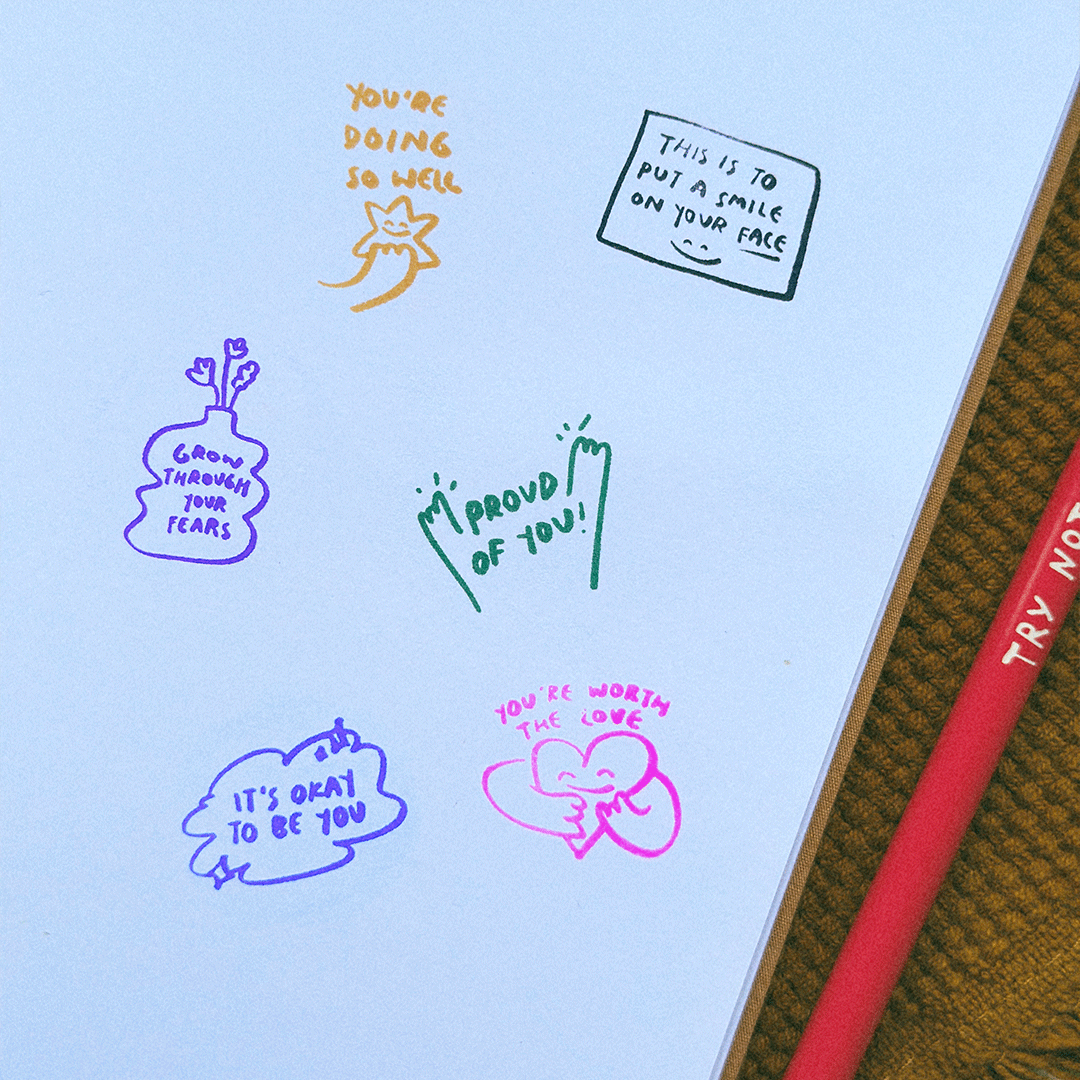 YOU'RE
DOING
SO WELL
THIS IS TO
PUT A SMILE
ON YOUR FACE
GROW
THROUGH
YOUR
FEARS
PROUD
OF YOU!
TRY NOT
YOU'RE WORTH
THE LOVE
IT'S OKAY
TO BE YOU